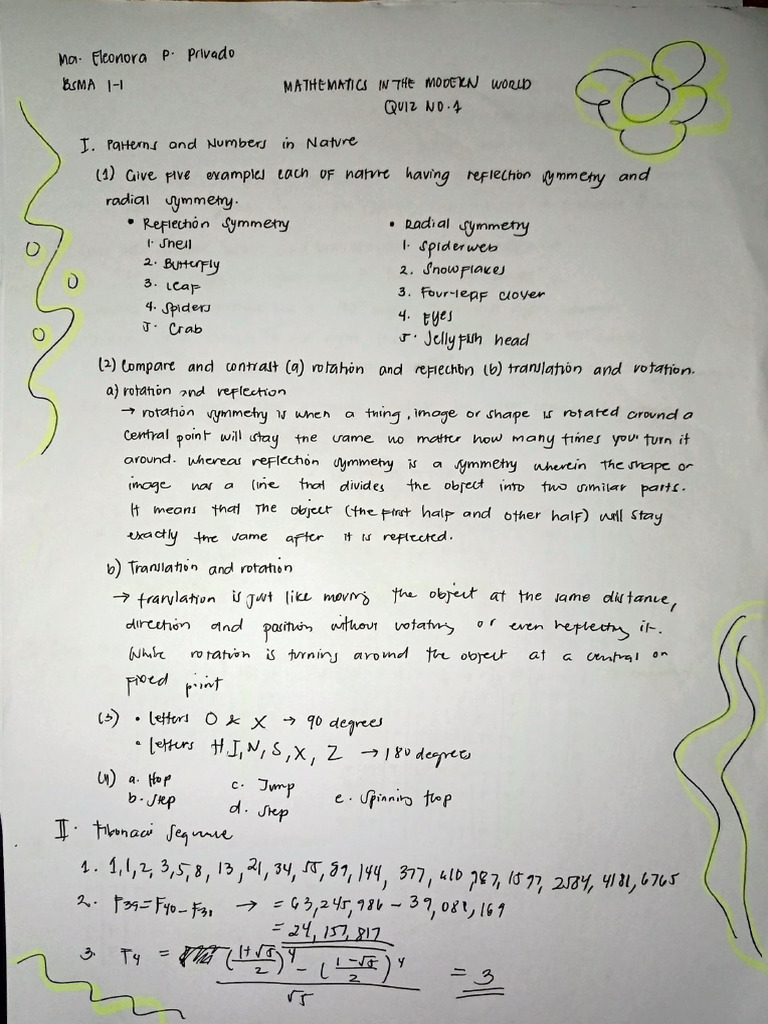 Ma. Eleonora P. Privado
BSMA 1-1
MATHEMATICS IN THE MODERN WORLD
QUIZ NO. 1
I. Patterns and Numbers in Nature
(1) Give five examples each of nature having reflection symmetry and
radial symmetry.
• Reflection Symmetry
1. Shell
2. Butterfly
3. Leaf
4. Spiders
5. Crab
• Radial Symmetry
1. Spiderweb
2. Snowflakes
3. Four-leaf clover
4. Eyes
5. Jellyfish head
(2) Compare and contrast (a) rotation and reflection (b) translation and rotation.
a) rotation and reflection
→ rotation symmetry is when a thing, image or shape is rotated around a
central point will stay the same no matter how many times you turn it
around. Whereas reflection symmetry is a symmetry wherein the shape or
image has a line that divides the object into two similar parts.
It means that the object (the first half and other half) will stay
exactly the same after it is reflected.
b) Translation and rotation
→ translation is just like moving the object at the same distance,
direction and position without rotating or even reflecting it.
While rotation is turning around the object at a central or
fixed point
(3) • letters O & X → 90 degrees
• letters H, I, N, S, X, Z → 180 degrees
(4) a. Hop
b. Step
c. Jump
d. Step
e. Spinning hop
II. Fibonacci Sequence
1. 1, 1, 2, 3, 5, 8, 13, 21, 34, 55, 89, 144, 377, 610, 987, 1597, 2584, 4181, 6765
2. F39 = F40 - F38 → = 63,245,986 - 39,088,169
= 24,157,817
3. F4 = (1+√5/2)^4 - (1-√5/2)^4 = 3
√5